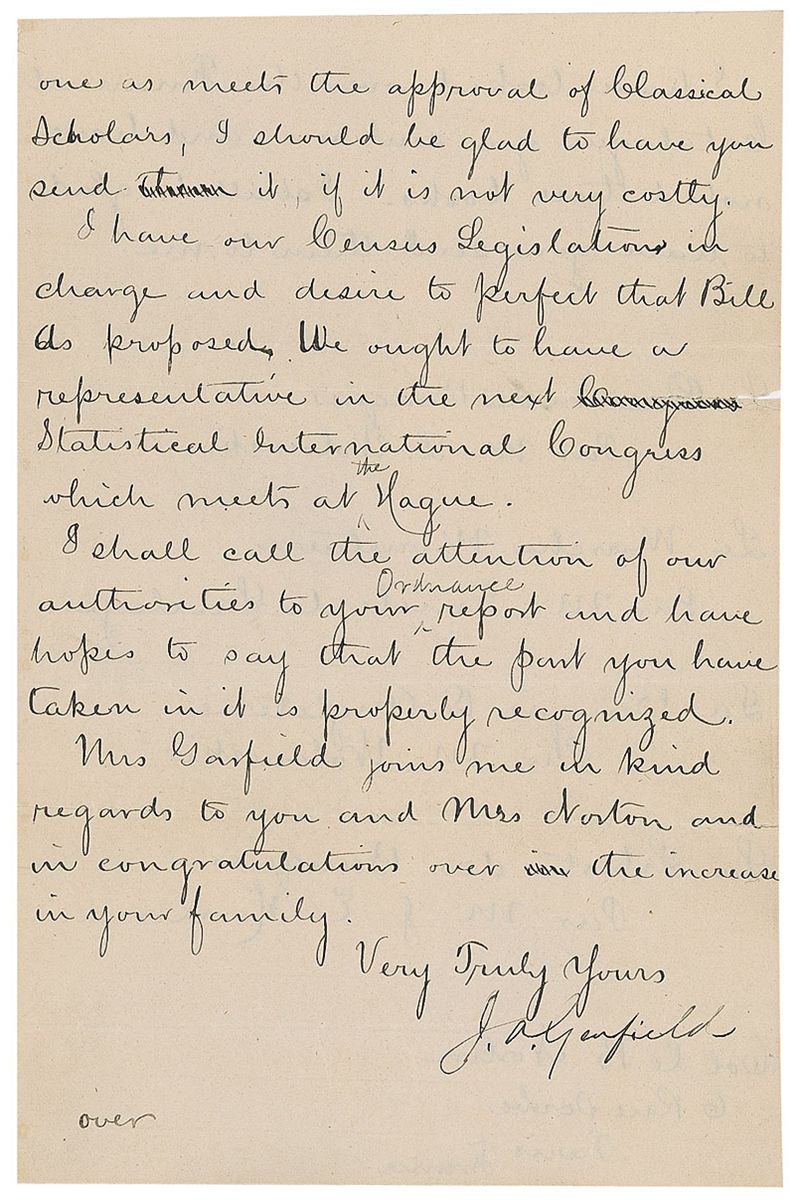 one as meets the approval of Classical
Scholars, I should be glad to have you
send it, if it is not very costly.
I have our Census Legislation in
charge and desire to perfect that Bill
As proposed. We ought to have a
representative in the next
Statistical International Congress
the
which meets at Hague.
I shall call the attention of our
Ordnance
authorities to your report and have
hopes to say that the part you have
taken in it is properly recognized.
Mrs Garfield joins me in kind
regards to you and Mrs Norton and
in congratulations over the increase
in your family.
Very Truly Yours
J. A. Garfield
over